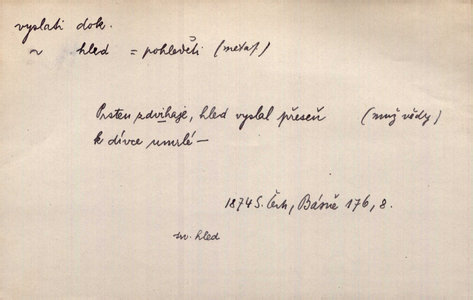 vyslati dok.
~ hled = pohleděti (metaf)
Prsten zdvihaje, hled vyslal přeseň (muž vědy)
k dívce umrlé —
1874 S. Čech, Básně 176, 8.
sv. hled